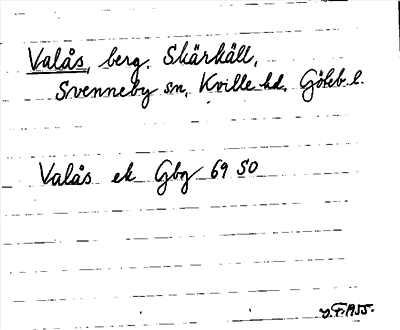 Valås, berg, Skärkäll,
Svenneby sn, Kville hd, Göteb. l.
Valås ek Gbg 69 SO
F. 1955.